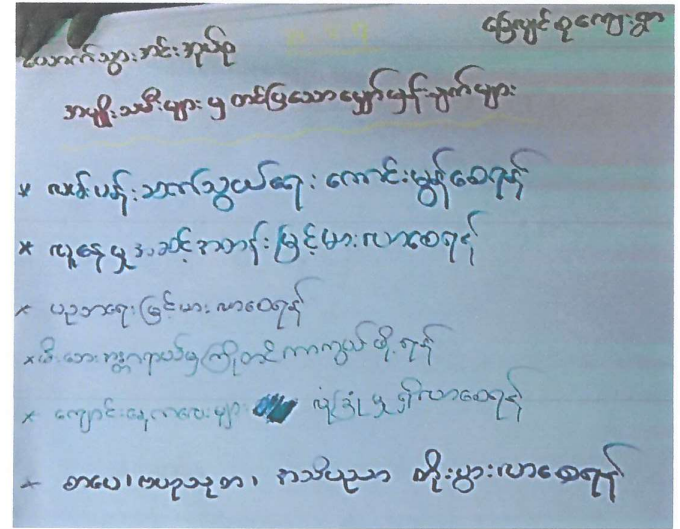 မြေလျင်စုကျေးရွာ
ယောက်သွားအင်းအုပ်စု
အမျိုးသမီးများမှတင်ပြသောမျှော်မှန်းချက်များ
* လမ်းပန်းဆက်သွယ်ရေးကောင်းမွန်စေရန်
* လူနေမှုအဆင့်အတန်းမြင့်မားလာစေရန်
* ပညာရေးမြင့်မားလာစေရန်
* ဘေးအန္တရာယ်မှကြိုတင်ကာကွယ်ဖို့ရန်
* ကျောင်းနေကလေးများ လုံခြုံမှုရှိလာစေရန်
* စာပေ၊ ဗဟုသုတ၊ အသိပညာ တိုးပွားလာစေရန်